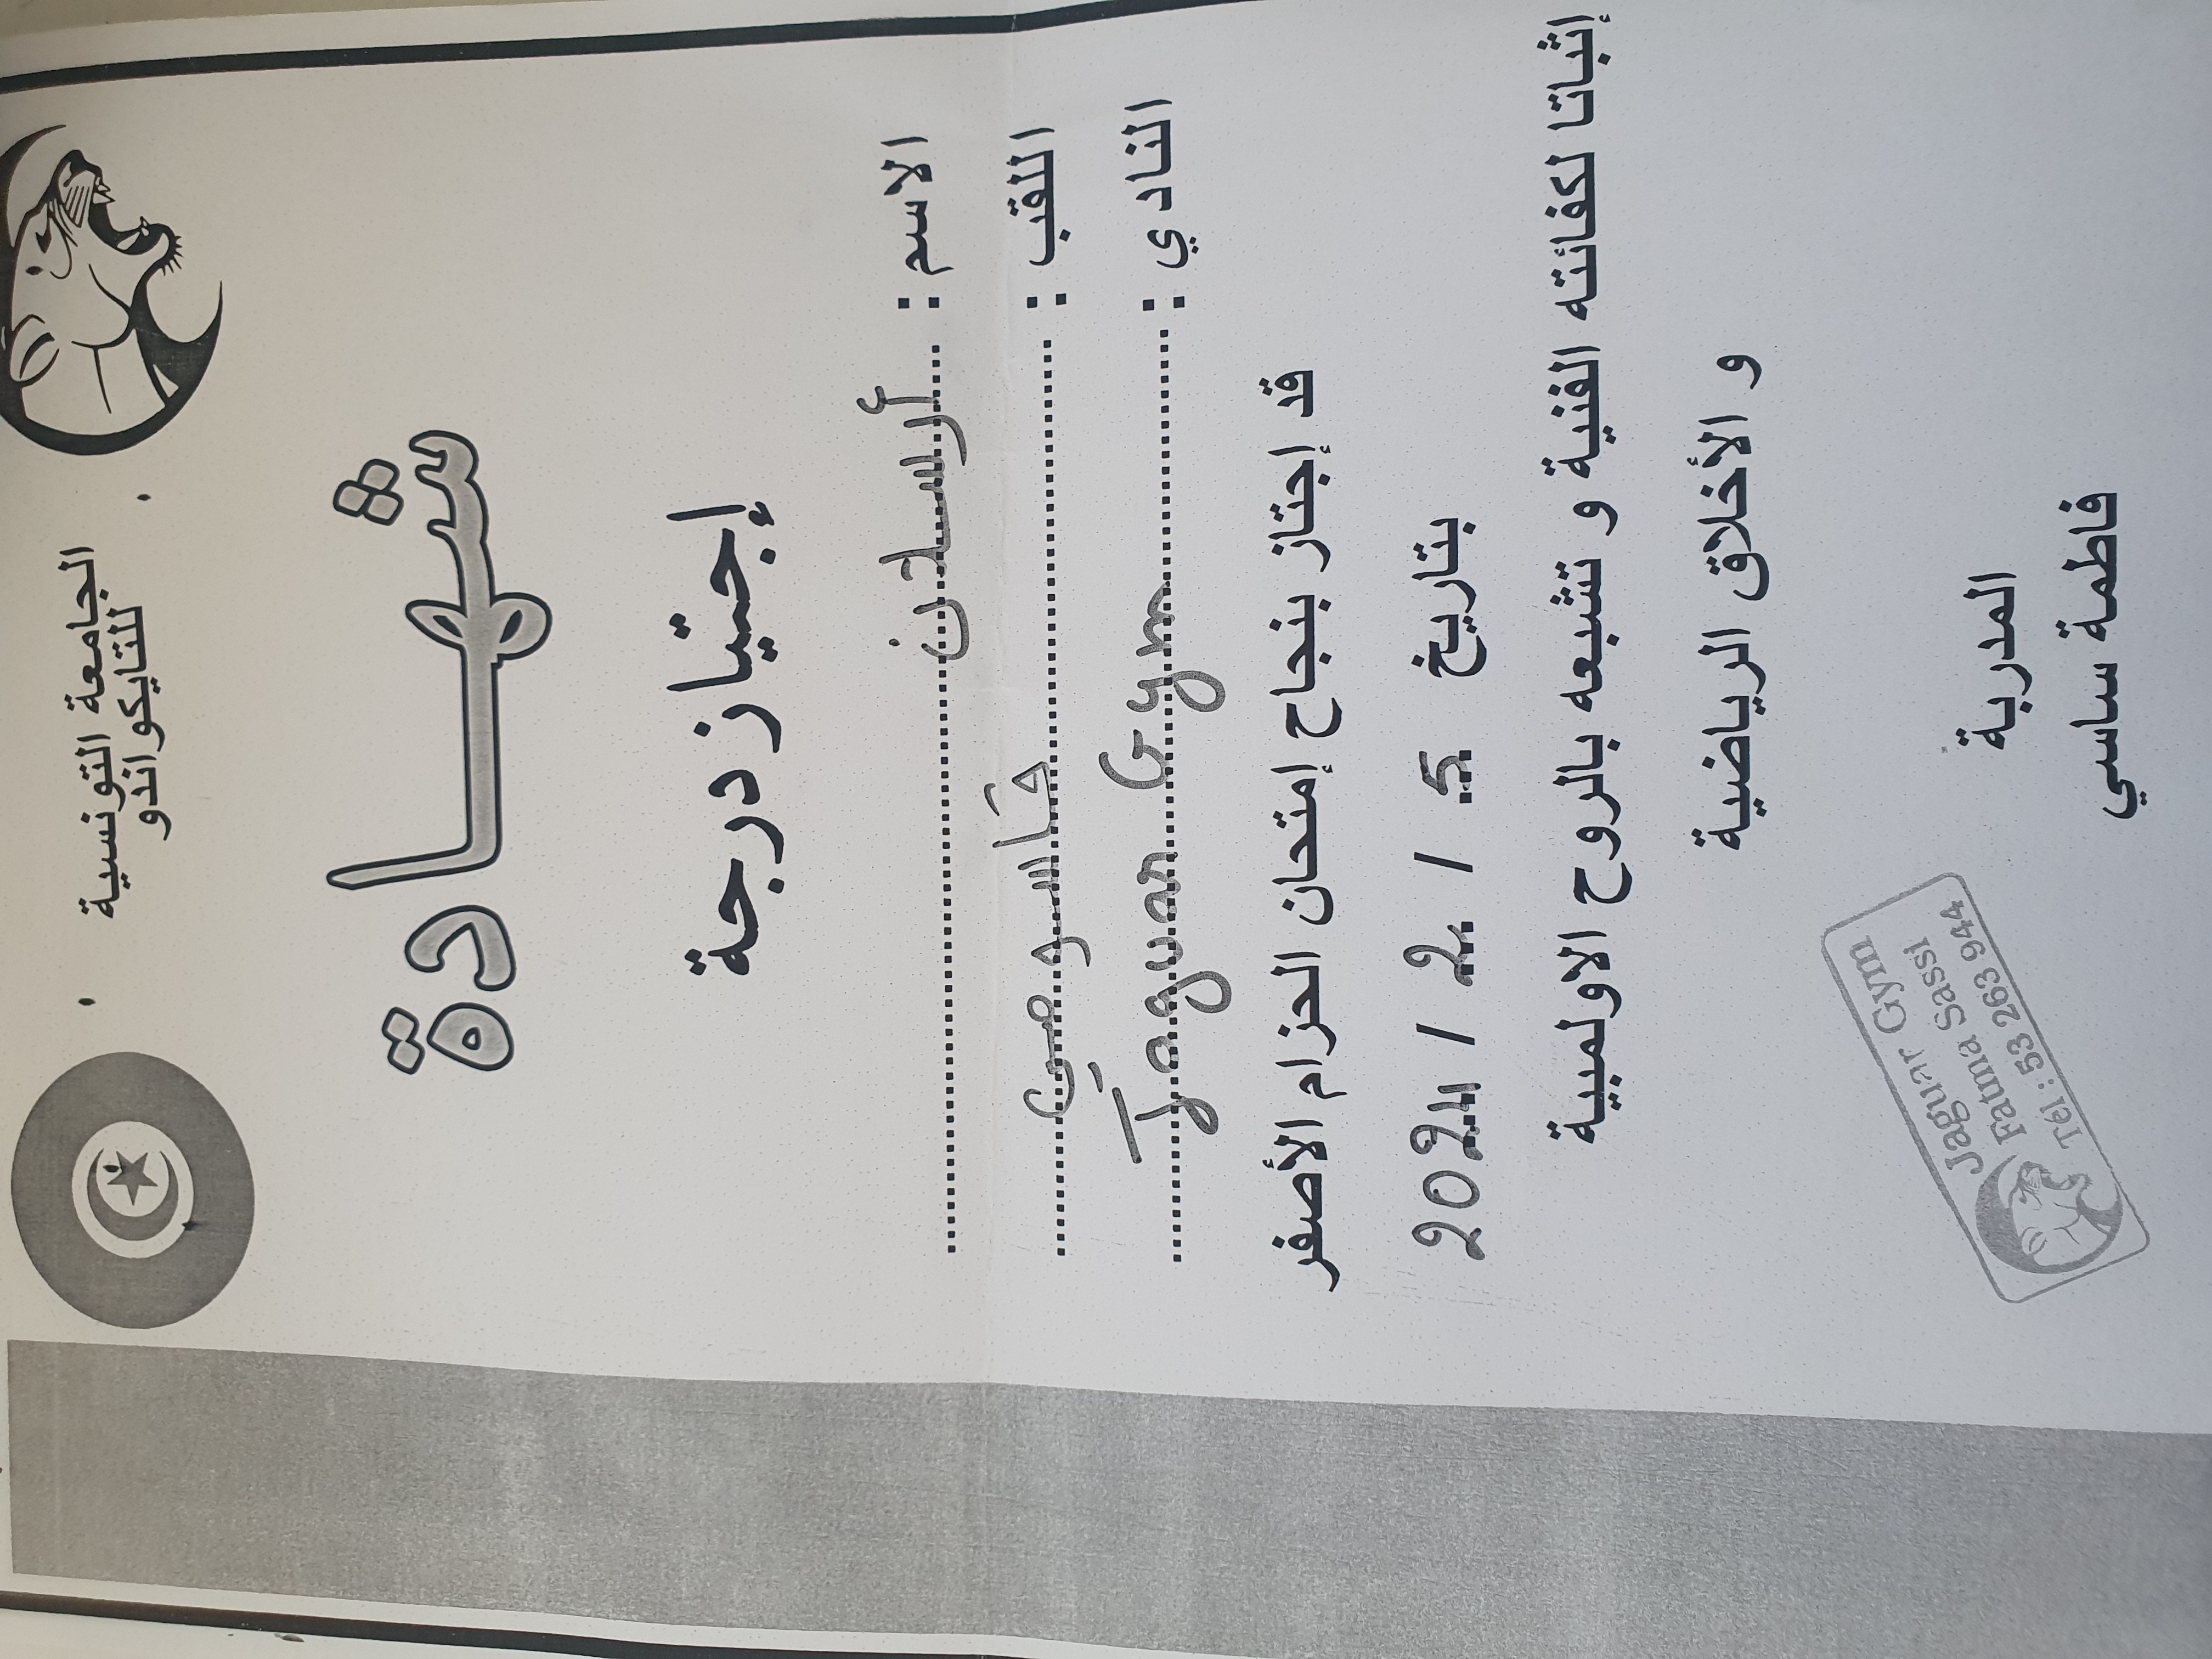 الجامعة التونسية
للتايكواندو
شهادة
إجتياز درجة
الاسم : أرسلان
اللقب :
النادي : Jaguar Gym
قد إجتاز بنجاح إمتحان الحزام الأصفر
بتاريخ 5 / 2 / 2021
إثباتا لكفائته الفنية و تشبعه بالروح الاولمبية
و الأخلاق الرياضية
المدربة
فاطمة ساسي
Jaguar Gym
Fatma Sassi
Tél : 53 263 944